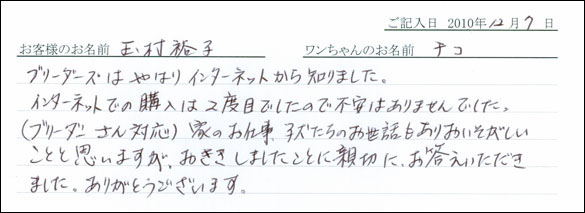 ご記入日 2010年12月7日
お客様のお名前 玉村裕子 ワンちゃんのお名前 チコ
ブリーダーズはやはりインターネットから知りました。
インターネットでの購入は2度目でしたので不安はありませんでした。
(ブリーダーさん対応) 家のお仕事、子犬たちのお世話もありおいそがしい
ことと思いますが、おききしましたことに親切に、お答えいただき
ました。ありがとうございます。